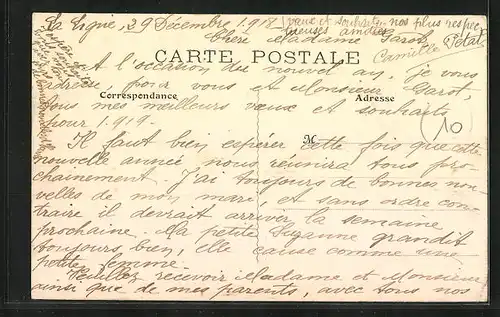 La Ligue, 29 Décembre 1918
Chère Madame Garot
CARTE POSTALE
A l'occasion du nouvel an, je vous
adresse pour vous et Monsieur Garot,
Correspondance Adresse
tous mes meilleurs vœux et souhaits
pour 1919.
(10)
M
Il faut bien espérer cette fois que cette
nouvelle année nous réunira tous pro-
chainement. J'ai toujours de bonnes nou-
velles de mon mari, et sans ordre con-
traire il devrait arriver la semaine
prochaine. Ma petite Suzanne grandit
toujours bien, elle cause comme une
petite femme.
Veuillez recevoir Madame et Monsieur
ainsi que de mes parents, avec tous nos
vœux et souhaits, nos plus respec-
tueuses amitiés
Camille Petat